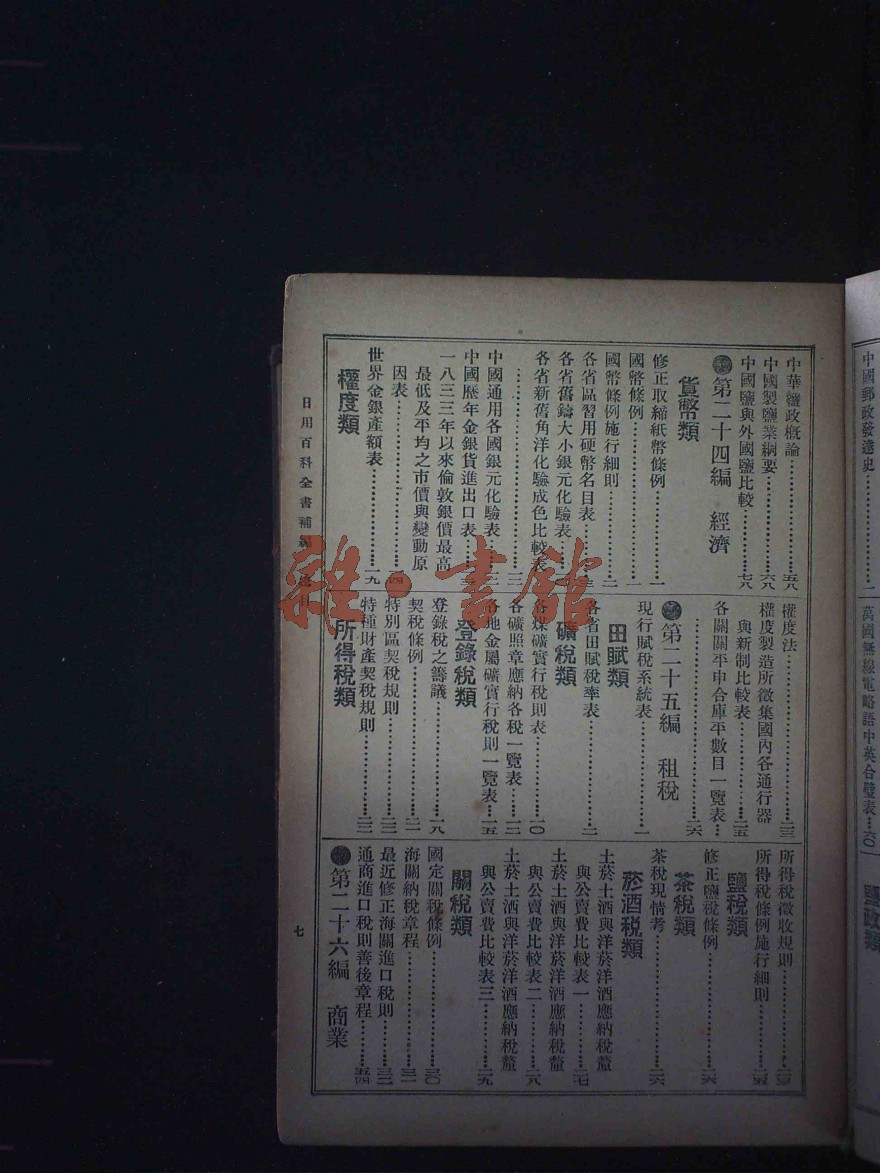 中國郵政發達史……一
萬國無線電略語中英合璧表…六〇
鹽政類
中華鹽政概論……五八
中國製鹽業綱要……六八
中國鹽與外國鹽比較……七八
第二十四編 經濟
貨幣類
修正取締紙幣條例……一
國幣條例……一
國幣條例施行細則……二
各省區習用硬幣名目表……
各省舊鑄大小銀元化驗表……
各省新舊角洋化驗成色比較表
……三
中國通用各國銀元化驗表……
中國歷年金銀貨進出口表……
一八三三年以來倫敦銀價最高
最低及平均之市價與變動原
因表……四
世界金銀產額表……一九
權度類
權度法……二三
權度製造所徵集國內各通行器
與新制比較表……二五
各關關平申合庫平數目一覽表…
……二六
第二十五編 租稅
現行賦稅系統表……一
田賦類
各省田賦稅率表……二
礦稅類
各煤礦實行稅則表……一〇
各礦照章應納各稅一覽表……一二
各地金屬礦實行稅則一覽表…一五
登錄稅類
登錄稅之籌議……一八
契稅條例……二一
特別區契稅規則……二二
特種財產契稅規則……二二
所得稅類
所得稅徵收規則……
所得稅條例施行細則……二五
鹽稅類
修正鹽稅條例……二六
茶稅類
茶稅現情考……二六
菸酒稅類
土菸土酒與洋菸洋酒應納稅釐
與公賣費比較表一……二七
土菸土酒與洋菸洋酒應納稅釐
與公賣費比較表二……二八
土菸土酒與洋菸洋酒應納稅釐
與公賣費比較表三……二九
關稅類
國定關稅條例……三〇
海關納稅章程……三一
最近修正海關進口稅則……三二
通商進口稅則善後章程……五四
第二十六編 商業
日用百科全書補編 總目
七
雜·書館